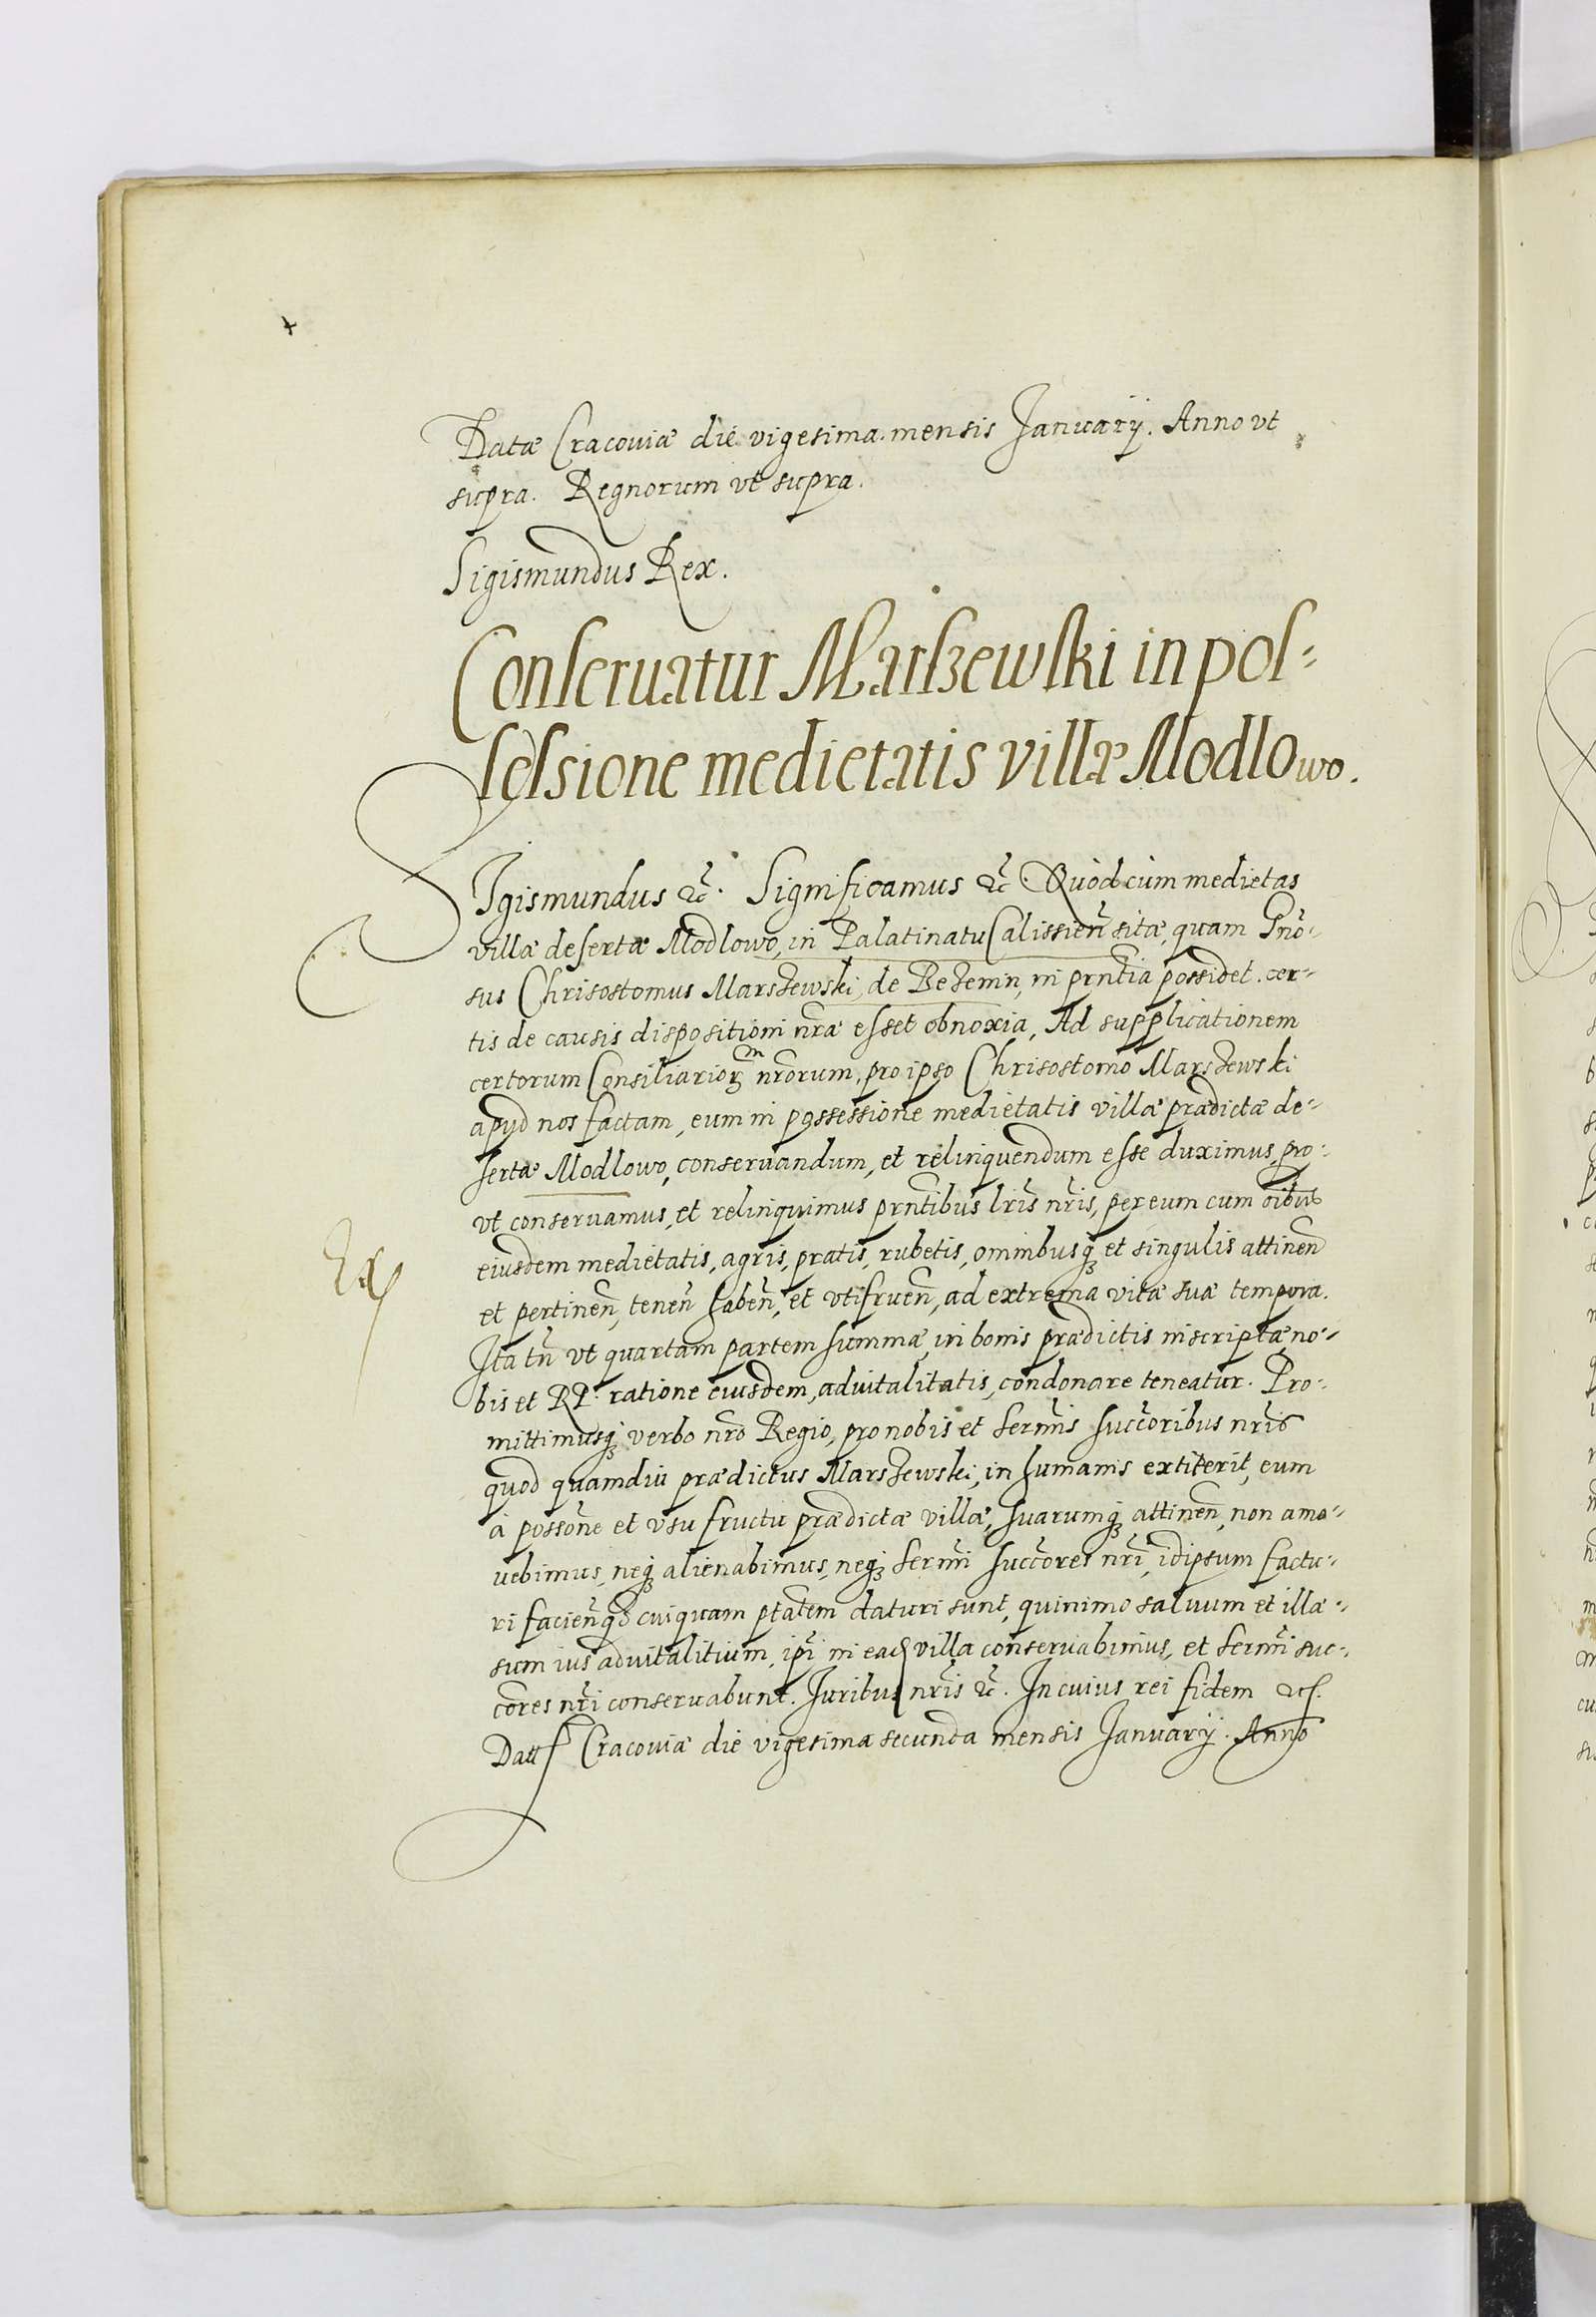 Datæ Cracouiæ die vigesima mensis Januarÿ. Anno vt
supra. Regnorum vt supra.
Sigismundus Rex.
Conseruatur Marszewski in pos-
sessione medietatis villæ Modlowo.
SIgismundus &c̃. Significamus &c̃. Quòd cùm medietas
villæ desertæ Modlowo, in Palatinatu Calissieñ sitæ, quam Gnõ-
sus Chrisostomus Marszewski, de Bezemin, in prñtia possidet. cer-
tis de causis dispositioni nr̃æ esset obnoxia, Ad supplicationem
certorum Consiliariorꝝ nr̃orum, pro ipso Chrisostomo Marszewski
apud nos factam, eum in possessione medietatis villæ prædictæ de-
sertæ Modlowo, conseruandum, et relinquendum esse duximus, pro-
vt conseruamus, et relinquimus prñtibus lr̃is nr̃is, per eum cum oĩbus
eiusdem medietatis, agris, pratis, rubetis, omnibusqꝫ et singulis attineñ
et pertineñ, teneñ habeñ, et vtifrueñ, ad extrema vitæ suæ tempora.
Ita tñ vt quartam partem summæ, in bonis prædictis inscriptæ, no-
bis et RP: ratione eiusdem, aduitalitatis, condonare teneatur. Pro-
mittimusqꝫ verbo nr̃o Regio, pro nobis et Serm̃is succ̃oribus nr̃is
quod quamdiu prædictus Marszewski, in humanis extiterit, eum
à possõne et vsufructu prædictæ villæ, suarumqꝫ attineñ, non amo-
uebimus, neqꝫ alienabimus, neqꝫ Serm̃i succ̃ores nr̃i, idipsum factu-
ri facieñqꝫ cuiquam ptãtem daturi sunt, quinimo saluum et illæ-
sum ius aduitalitium, ip̃i in ead villa conseruabimus, et Serm̃i suc-
c̃ores nr̃i conseruabunt. Juribus nr̃is &c̃. In cuius rei fidem &c.
Datt Cracouiæ die vigesima secunda mensis Januarÿ. Anno